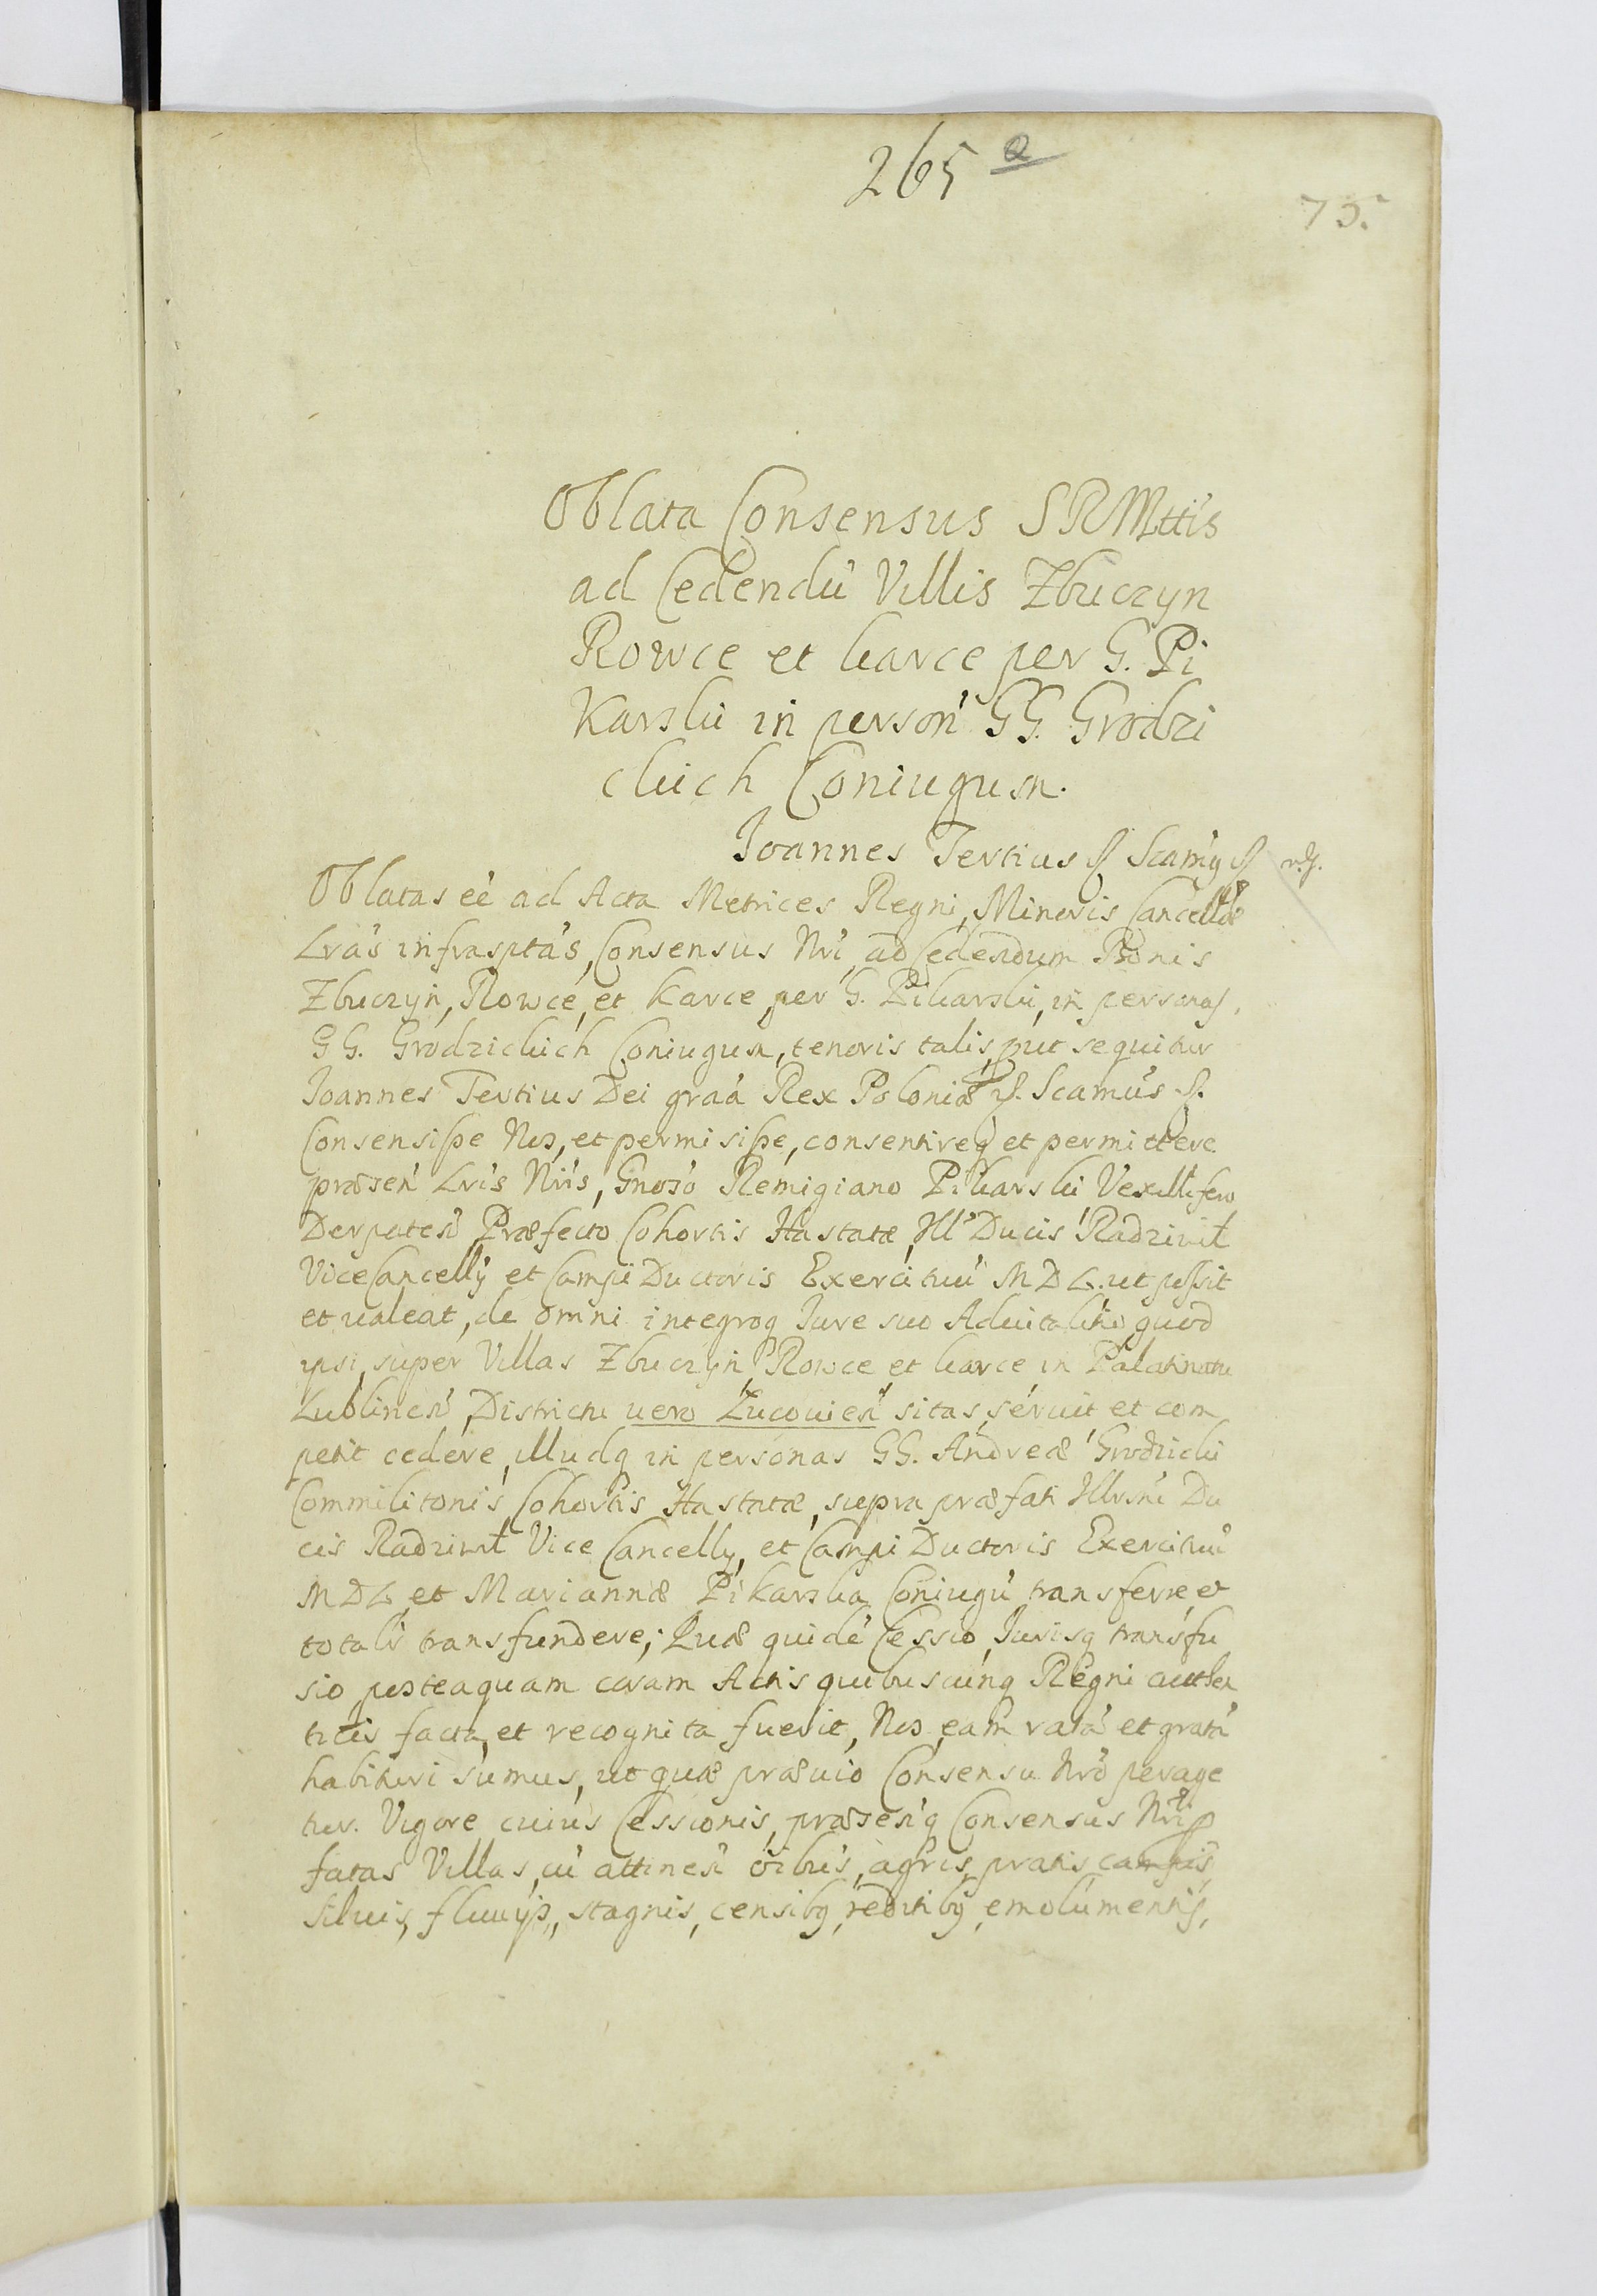 265 a
75.
Oblata Consensus SRMttis
ad Cedendũ Villis Zbuczyn
Rowce et karce per G. Pi
Karski in person̄ GG. Grodzi
ckich Coniugum.
Joannes Tertius Scam̃g
Oblatas eẽ ad Acta Metrices Regni, Minoris Cancellæ
Lrãs infrasptãs, Consensus Nrĩ ad Cedendum Bonis
Zbuczyn, Rowce, et Karce, per G. Pikarski, in personas,
GG. Grodzickich Coniugum, tenoris talis, put sequitur
Joannes Tertius Dei graã Rex Poloniæ Scamũs
Consensiße Nos, et permisiße, consentireq et permittere
præsen̄ Lrĩs Nrĩs, Gnosõ Remigiano Pikarski Vexillifero
Derpaten̄ Præfecto Cohortis Hastatæ, Ill Ducis Radziwił
ViceCancellÿ et Campi Ductoris Exercituũ MDL. ut possit
et ualeat, de omni integroq Jure suo Aduitalitio, quod
ipsi, super Villas Zbuczyn, Rowce, et karce, in Palatinatu
Lublinen̄, Districtu uero Łucouien̄ sitas, seruit et com
petit cedere, illudq in personas GG. Andreæ Grodzicki
Commilitonis Cohortis Hastatæ, supra præfati Illrsmi Du
cis Radziwił Vice Cancellÿ, et Campi Ductoris Exercituũ
MDL, et Mariannæ Pikarska Coniugũ transferre, et
totalr̃ transfundere; Quæ quidẽ Cessio, Jurisq transfu
sio posteaquam coram Actis quibuscunq Regni authen
ticis facta, et recognita fuerit, Nos eam ratã et gratã
habituri sumus, ut quæ præuio Consensu Nrõ perage
tur. Vigore cuius Cessionis, præsesq̃ Consensus Nrĩ p
fatas Villas, cũ attinen̄ oĩbus, agris, pratis, campis,
siluis, fluuÿs, stagnis, censibq, reditibq, emolumentis,